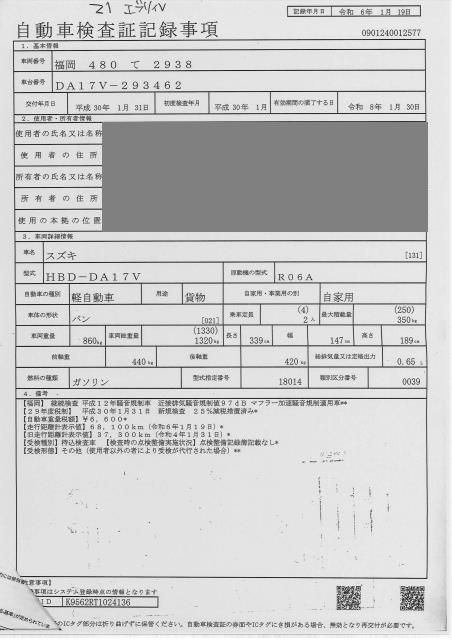 記録年月日 令和 6年 1月 19日
自動車検査証記録事項
0901240012577
1.基本情報
車両番号 福岡 480 て 2938
車台番号 DA17V-293462
交付年月日 平成 30年 1月 31日 初度検査年月 平成 30年 1月 有効期間の満了する日 令和 8年 1月 30日
2.使用者・所有者情報
使用者の氏名又は名称
使用者の住所
所有者の氏名又は名称
所有者の住所
使用の本拠の位置
3.車両詳細情報
車名 スズキ [131]
型式 HBD-DA17V 原動機の型式 R06A
自動車の種別 軽自動車 用途 貨物 自家用・事業用の別 自家用
車体の形状 バン [021] 乗車定員 (4) 2人 最大積載量 (250) 350kg
車両重量 860kg 車両総重量 (1330) 1320kg 長さ 339cm 幅 147cm 高さ 189cm
前軸重 440kg 後軸重 420kg 総排気量又は定格出力 0.65L
燃料の種類 ガソリン 型式指定番号 18014 類別区分番号 0039
4.備考
【福岡】 継続検査 平成12年騒音規制車 近接排気騒音規制値97dB マフラー加速騒音規制適用車**
【29年度税制】 平成30年1月31日 新規検査 25%減税措置済み*
【自動車重量税額】¥6,600*
【走行距離計表示値】68,100km(令和6年1月19日)*
【旧走行距離計表示値】37,300km(令和4年1月31日)*
【受検種別】持込検査車 【検査時の点検整備実施状況】点検整備記録簿記載なし*
【受検形態】その他(使用者以外の者により受検が代行された場合)**
意事項】
事項はシステム登録時点の情報となります
ID K9562RT1024136
のICタグ部分は折り曲げずに保管ください。自動車検査証の券面やICタグにき損がある場合、無効となり再交付が必要です。